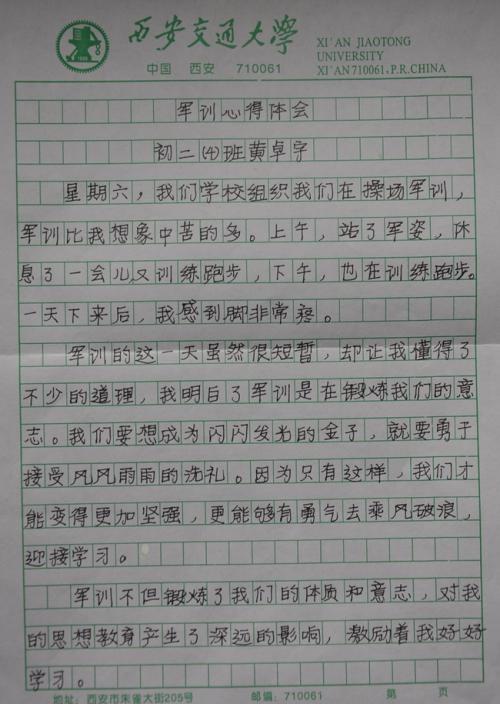 西安交通大学
中国 西安 710061
XI'AN JIAOTONG
UNIVERSITY
XI'AN 710061, P.R.CHINA
军训心得体会
初二(4)班黄卓宇
星期六，我们学校组织我们在操场军训，
军训比我想象中苦的多。上午，站了军姿，休
息了一会儿又训练跑步，下午，也在训练跑步。
一天下来后，我感到脚非常疼。
军训的这一天虽然很短暂，却让我懂得了
不少的道理，我明白了军训是在锻炼我们的意
志。我们要想成为闪闪发光的金子，就要勇于
接受风风雨雨的洗礼。因为只有这样，我们才
能变得更加坚强，更能够有勇气去乘风破浪，
迎接学习。
军训不但锻炼了我们的体质和意志，对我
的思想教育产生了深远的影响，激励着我好好
学习。
地址：西安市朱雀大街205号 邮编：710061 第 页